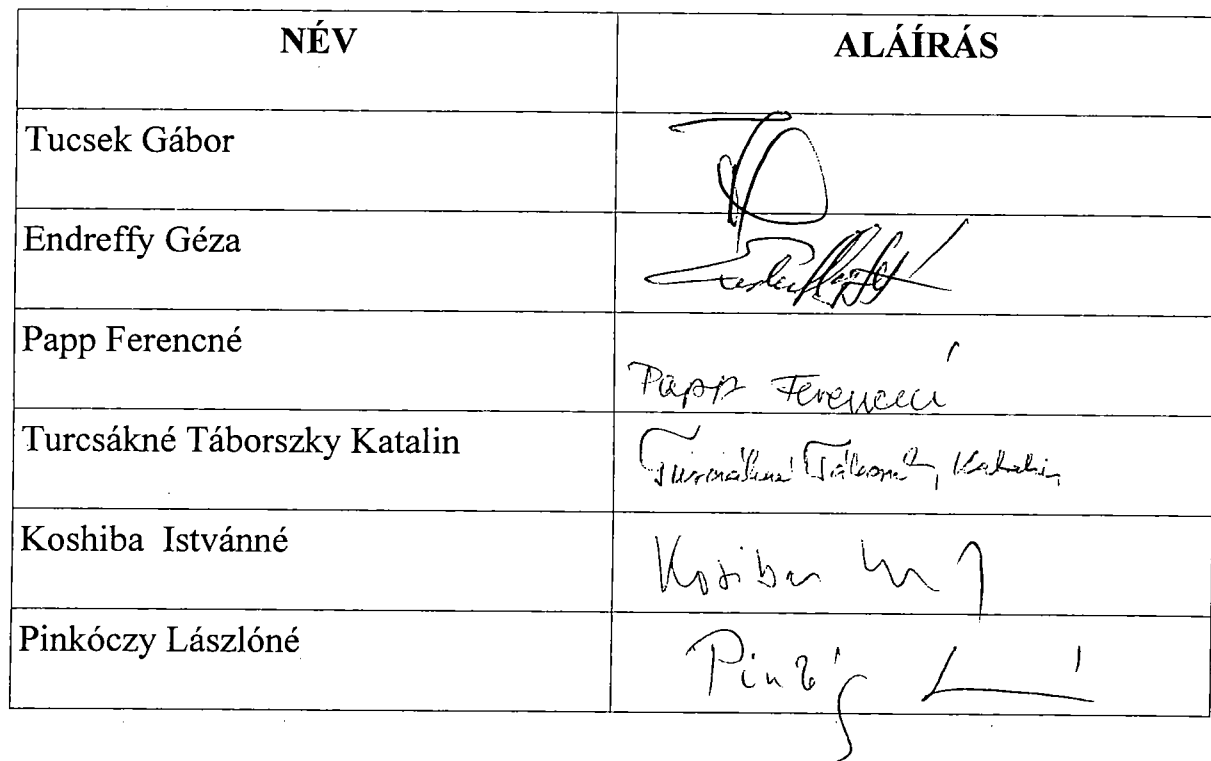 NÉV ALÁÍRÁS
Tucsek Gábor
Endreffy Géza
Papp Ferencné Papp Ferencné
Turcsákné Táborszky Katalin Turcsákné Táborszky Katalin
Koshiba Istvánné
Pinkóczy Lászlóné